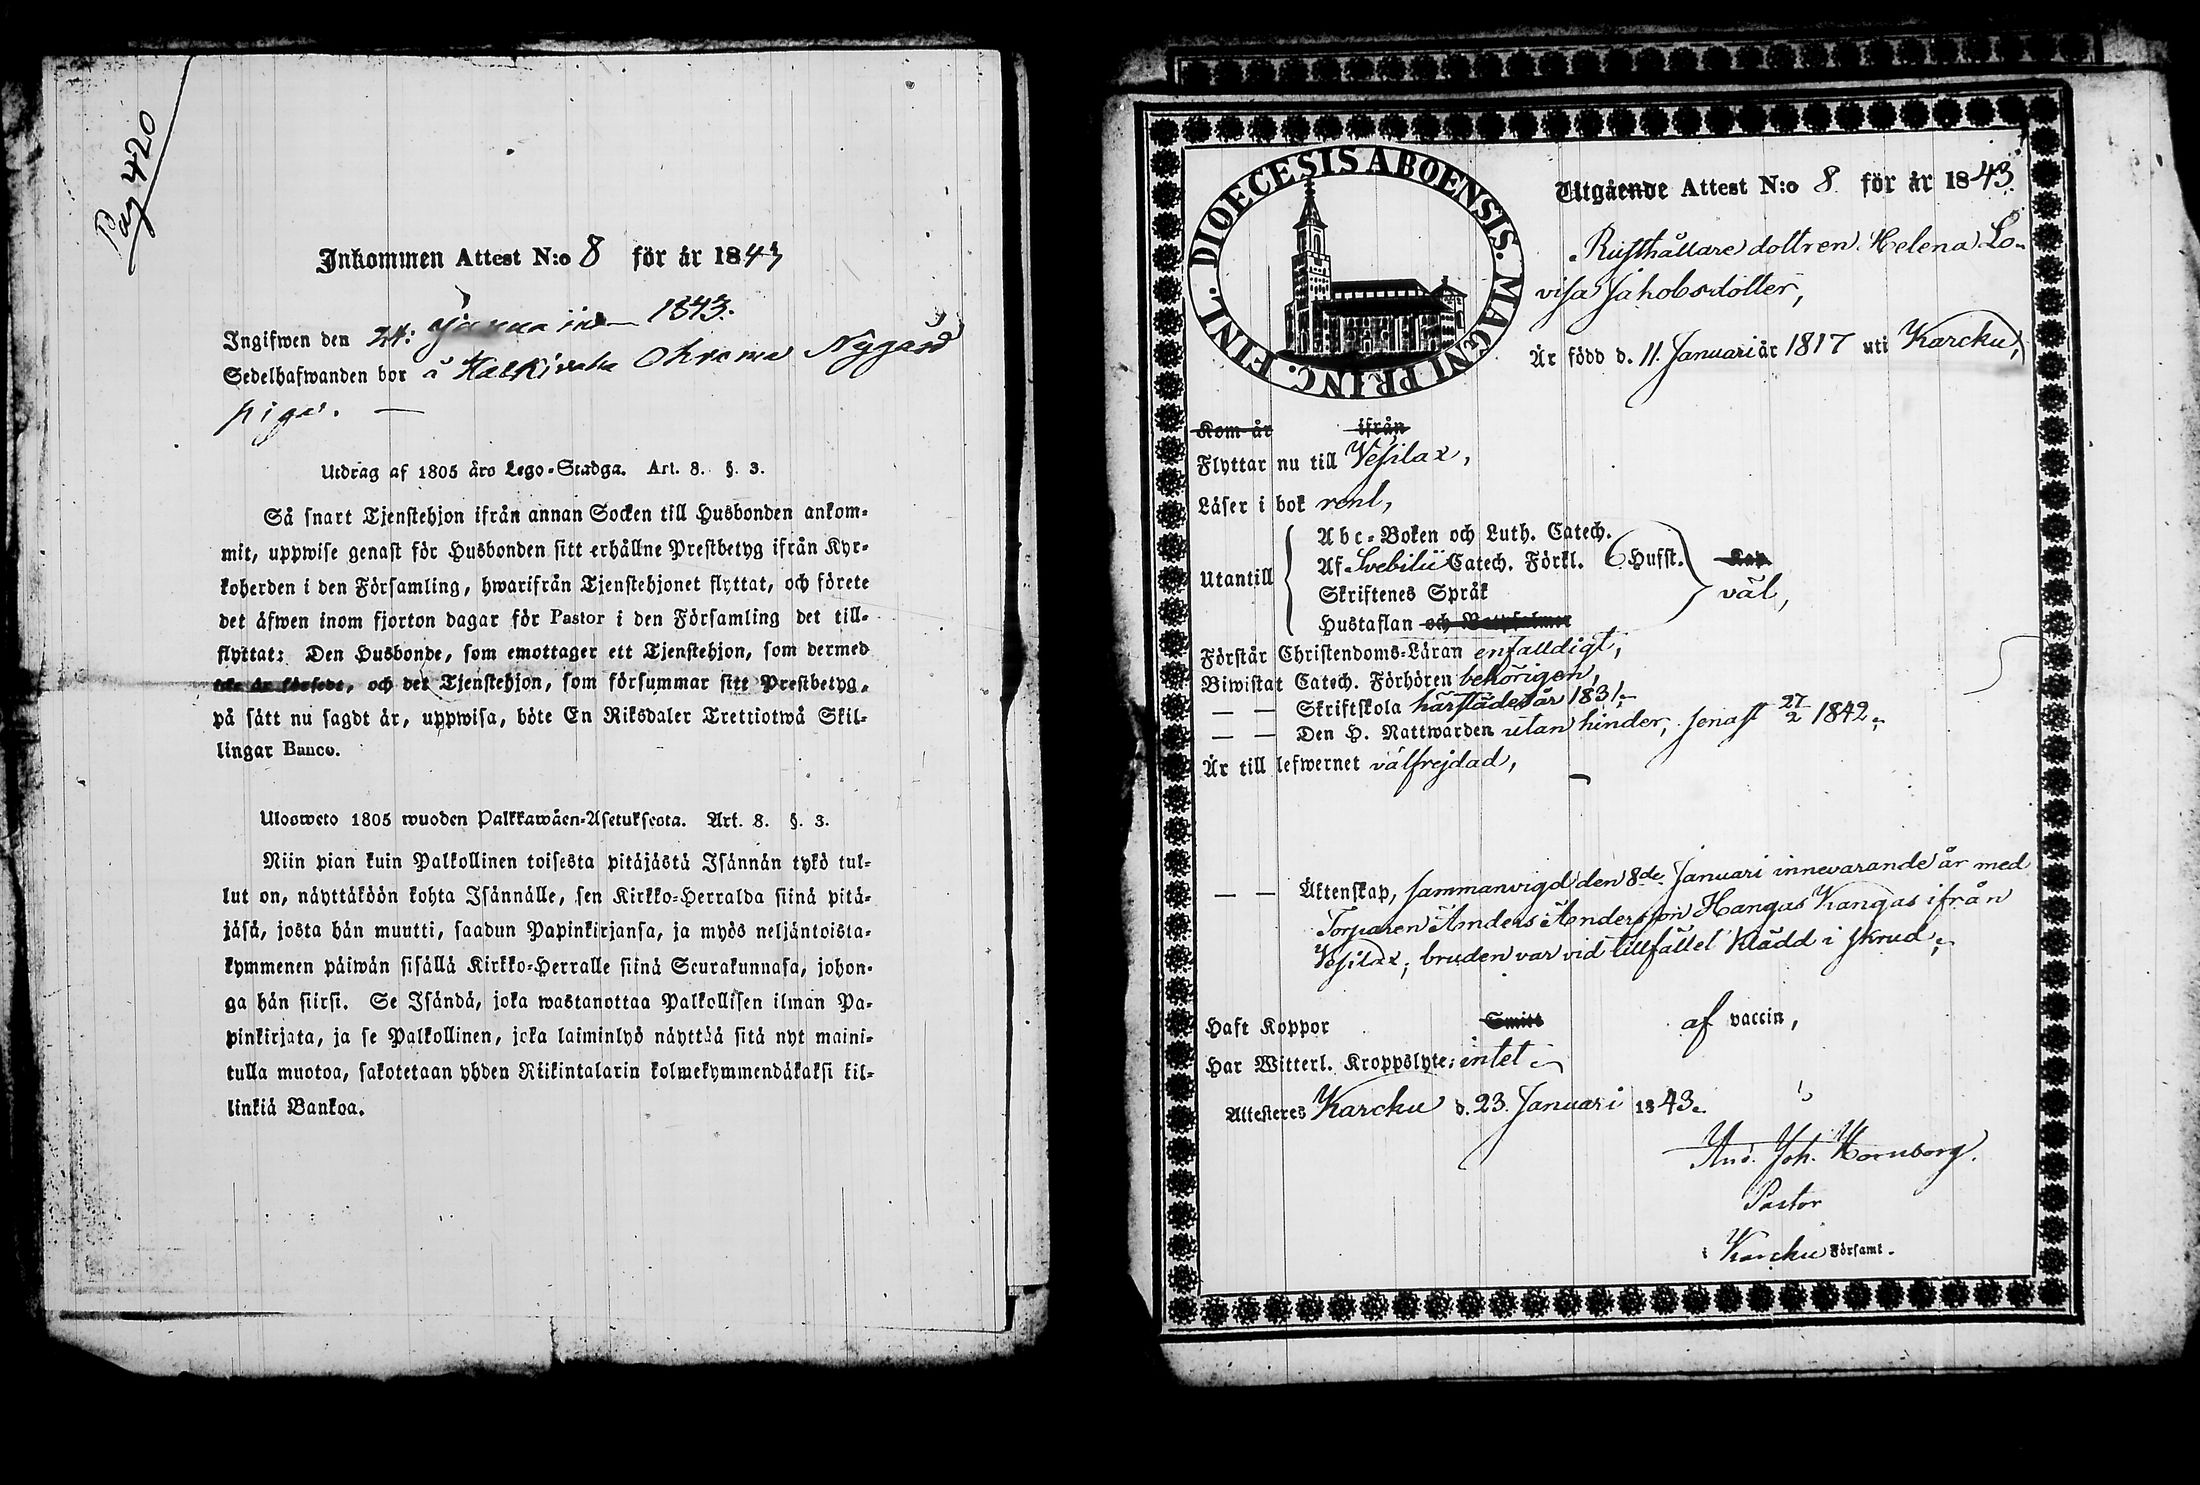 Pag 420
Inkommen Attest N:o 8 för år 1843
Ingifwen den 24: Januarii 1843.
Sedelhafwanden bor å Nygård
piga. —
Utdrag af 1805 års Lego-Stadga. Art. 8. §. 3.
Så snart Tjenstehjon ifrån annan Socken till Husbonden ankom-
mit, uppwise genast för Husbonden sitt erhållne Prestbetyg ifrån Kyr-
koherden i den Församling, hwarifrån Tjenstehjonet flyttat, och förete
det äfwen inom fjorton dagar för Pastor i den Församling det till-
flyttat: Den Husbonde, som emottager ett Tjenstehjon, som dermed
icke är försedt, och det Tjenstehjon, som försummar sitt Prestbetyg,
på sätt nu sagdt är, uppwisa, böte En Riksdaler Trettiotwå Skil-
lingar Banco.
Uloswето 1805 wuoden Palkkawäen-Asetuksesta. Art. 8. §. 3.
Niin pian kuin Palkollinen toisesta pitäjästä Isännän tykö tul-
lut on, näyttäköön kohta Isännälle, sen Kirkko-Herralda siinä pitä-
jäsä, josta hän muutti, saadun Papinkirjansa, ja myös neljäntoista-
kymmenen päiwän sisällä Kirkko-Herralle siinä Seurakunnasa, johon-
ga hän siirsi. Se Isändä, joka wastanottaa Palkollisen ilman Pa-
pinkirjata, ja se Palkollinen, joka laiminlyö näyttää sitä nyt maini-
tulla muotoa, sakotetaan yhden Riikintalarin kolmekymmendäkaksi kil-
linkiä Bankoa.
DIOECESIS ABOENSIS. MAGNI PRINC. FINL.
Utgående Attest N:o 8. för år 1843.
Rusthållare dottren Helena Lo-
visa Jakobsdotter,
Är född d. 11. Januari år 1817 uti Karcku,
Kom år ifrån
Flyttar nu till Vesilax,
Läser i bok rent,
Utantill
Abc-Boken och Luth. Catech.
Af Svebilii Catech. Förkl. 6 Hufst. Kap
Skriftenes Språk väl,
Hustaflan och Botpsalmer
Förstår Christendoms-Läran enfalldigt,
Biwistat Catech. Förhören behörigen,
— — Skriftskola härstädes år 1831;
— — Den H. Nattwarden utan hinder, senast 27/2 1842;
Är till lefwernet välfrejdad,
— — Äktenskap, sammanvigd den 8de Januari innevarande år med
Torparen Anders Andersson Hangas Kangas ifrån
Vesilax; bruden var vid tillfället klädd i skrud;
Haft Koppor Smitt af vaccin,
Har Witterl. Kroppslyte: intet
Attesteres Karcku d. 23. Januari 1843.
And. Joh. Hornborg.
Pastor
i Karcku Församl.